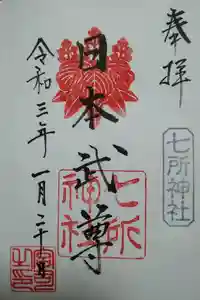 奉拝
七所神社
日本武尊
七所神社
令和三年一月二十日